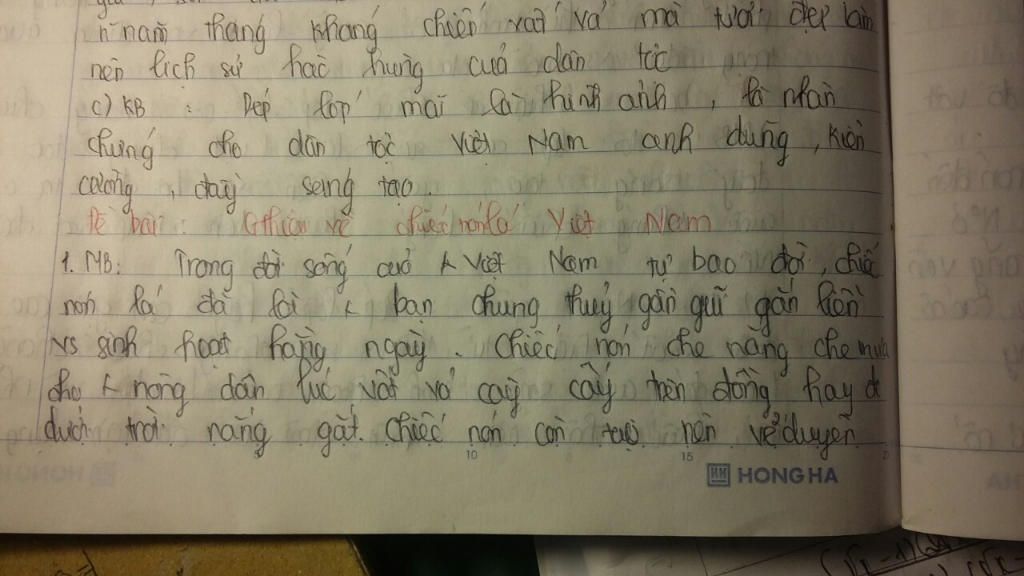 n năm tháng kháng chiến vất vả mà tươi đẹp làm
nên lịch sử hào hùng của dân tộc
c) KB : Dép lốp mãi là hình ảnh, là nhân
chứng cho dân tộc Việt Nam anh dũng, kiên
cường, đầy sáng tạo
Đề bài: Gthiệu về chiếc nón lá Việt Nam
1. MB: Trong đời sống của Việt Nam tự bao đời, chiếc
nón lá đã là bạn chung thuỷ gần gũi gắn liền
vs sinh hoạt hằng ngày. Chiếc nón che nắng che mưa
cho nông dân lúc vất vả cày cấy trên đồng hay đi
dưới trời nắng gắt. Chiếc nón còn tạo nên vẻ duyên
10 15
HONG HA